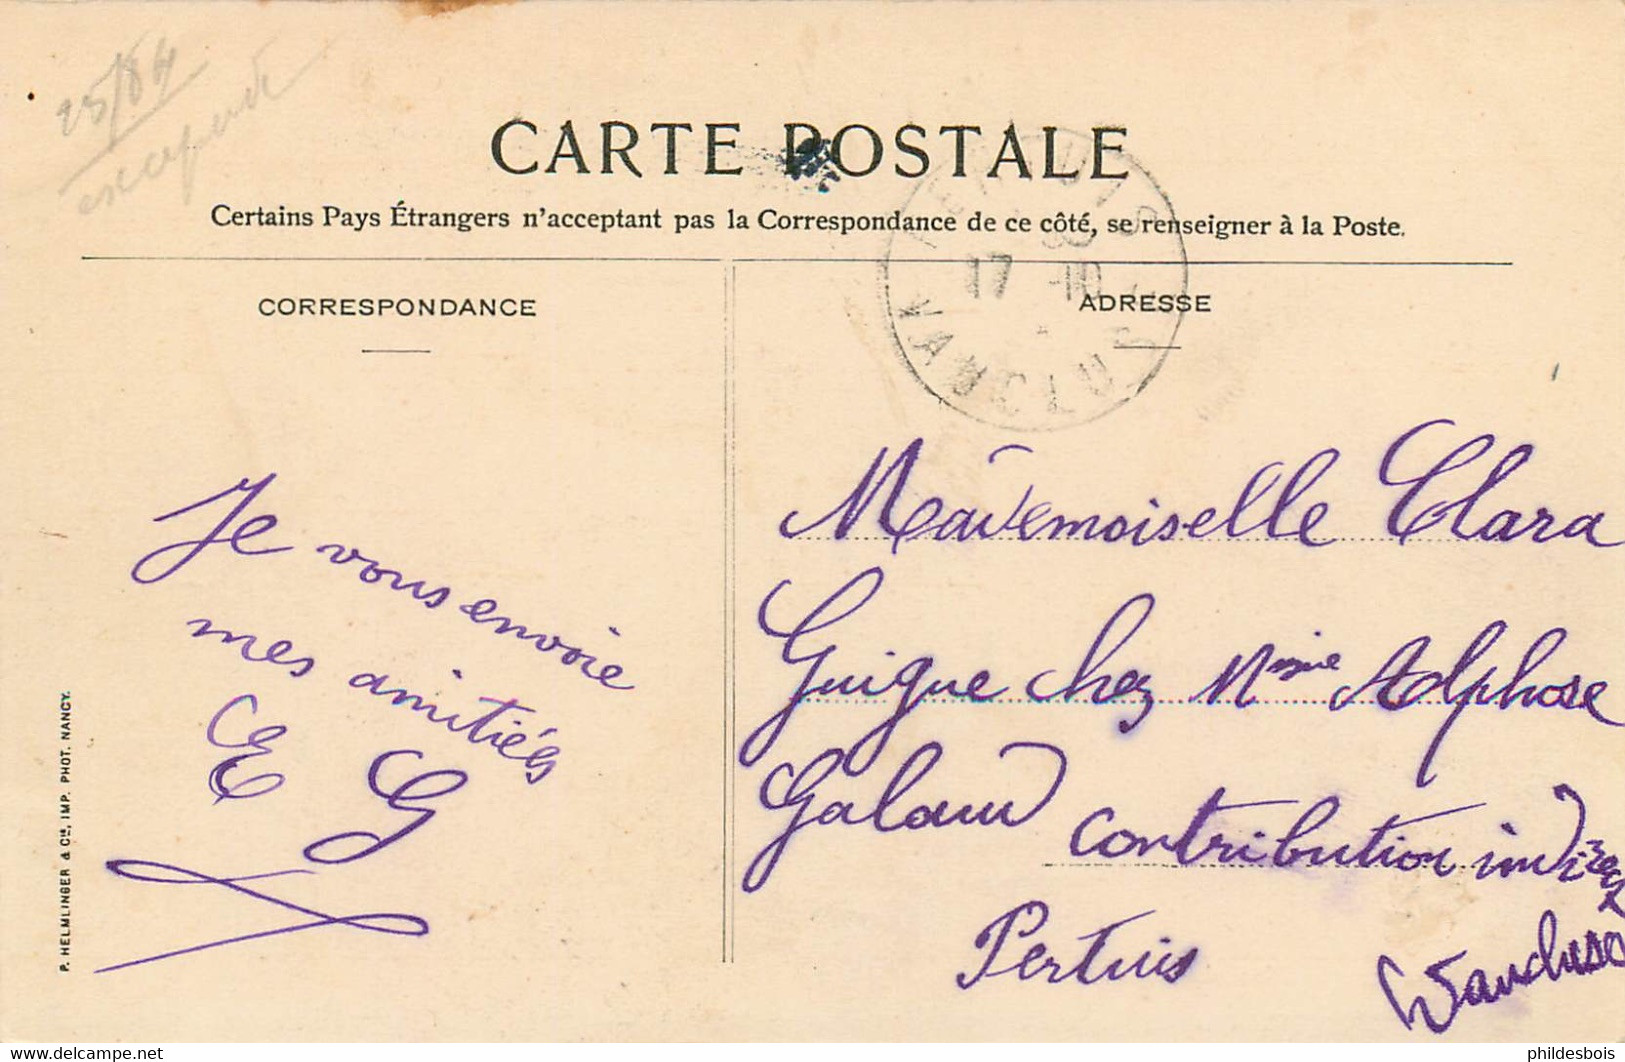 25/84
CARTE POSTALE
Certains Pays Étrangers n'acceptant pas la Correspondance de ce côté, se renseigner à la Poste.
PERTUIS
17 -10
VAUCLUSE
CORRESPONDANCE
ADRESSE
Je vous envoie
mes amitiés
E G
Mademoiselle Clara
Guigue chez Mme Alphose
Galaud
contribution indirect
Pertuis
Vaucluse
P. HELMLINGER & Cie, IMP. PHOT. NANCY.
https://www.delcampe.net
phildesbois